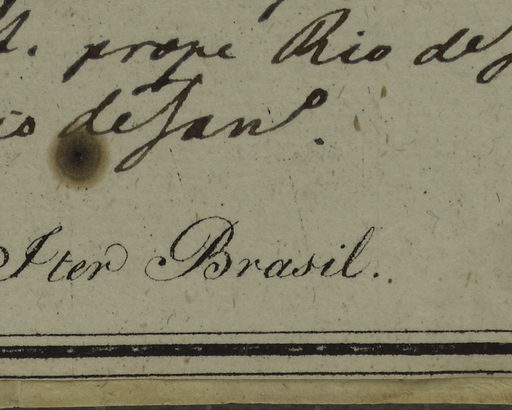 . prope Rio de
de Jan°.
Iter Brasil.